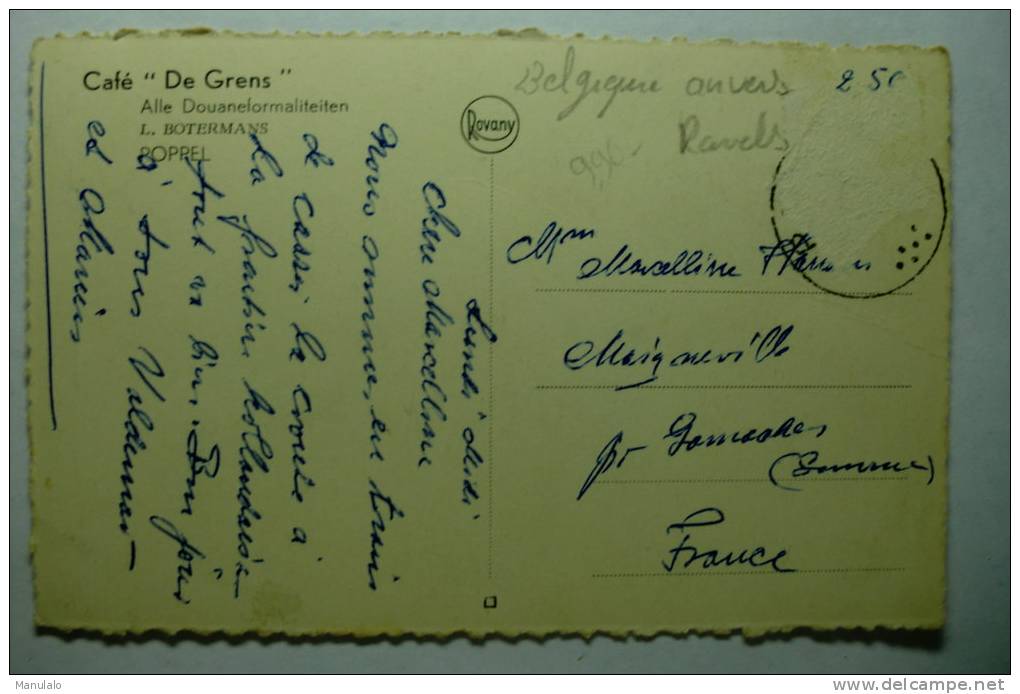 Café " De Grens "
Alle Douaneformaliteiten
L. BOTERMANS
POPPEL
Rovany
Belgique anvers
Ravels
2 50
Lundi Midi
Chere Marcelline
Nous sommes en train
de casser la croute à
la frontière hollandaise
tout va bien. Bonjour
à tous Valdemar
et
Mm Marcelline
Maigneville
pr Gamaches
(Somme)
France
Manulalo
www.delcampe.net